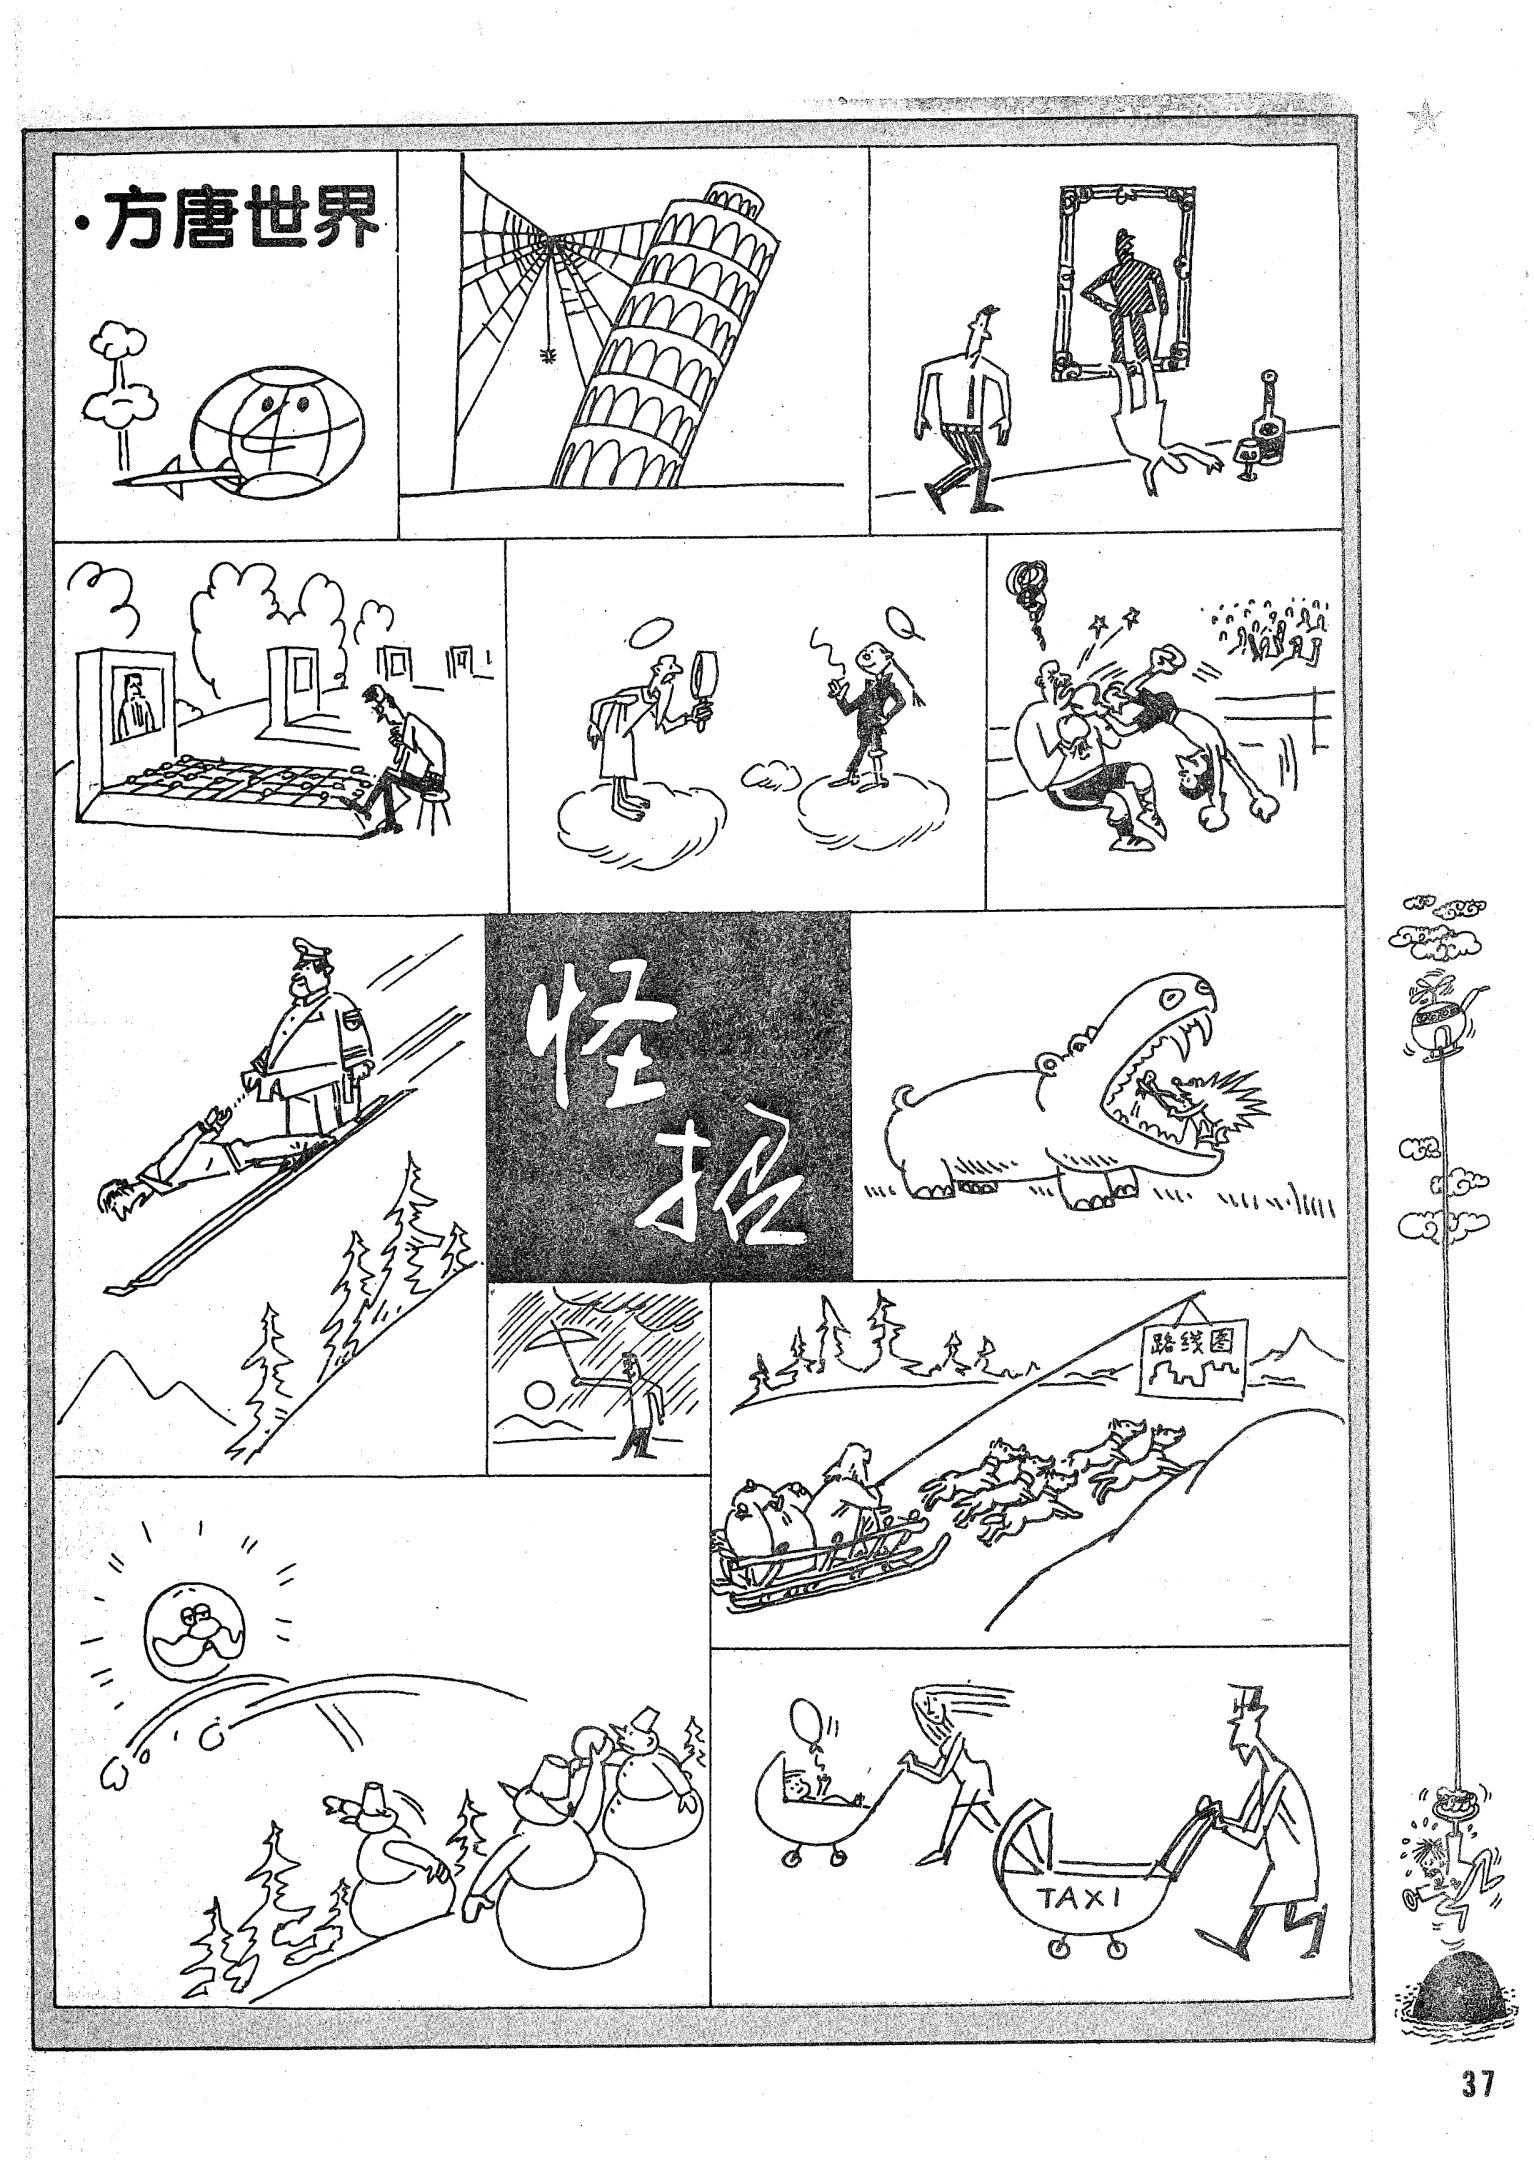 ·方唐世界
怪招
路线图
TAXI
37